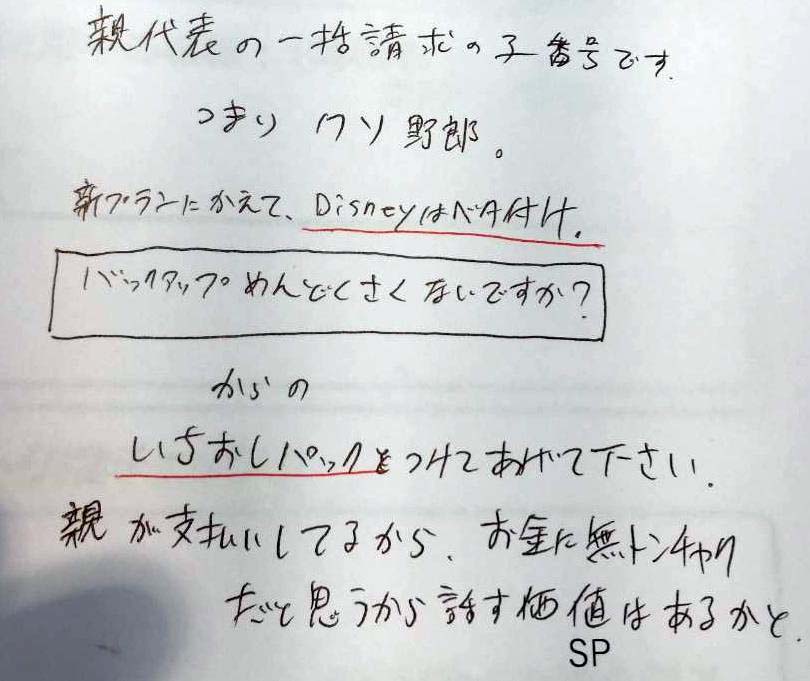 親代表の一括請求の子番号です.
つまり クソ野郎。
新プランにかえて、Disneyはベタ付け.
バックアップめんどくさくないですか?
からの
いちおしパックをつけてあげて下さい.
親が支払いしてるから、お金に無トンチャク
だと思うから話す価値はあるかと.
SP